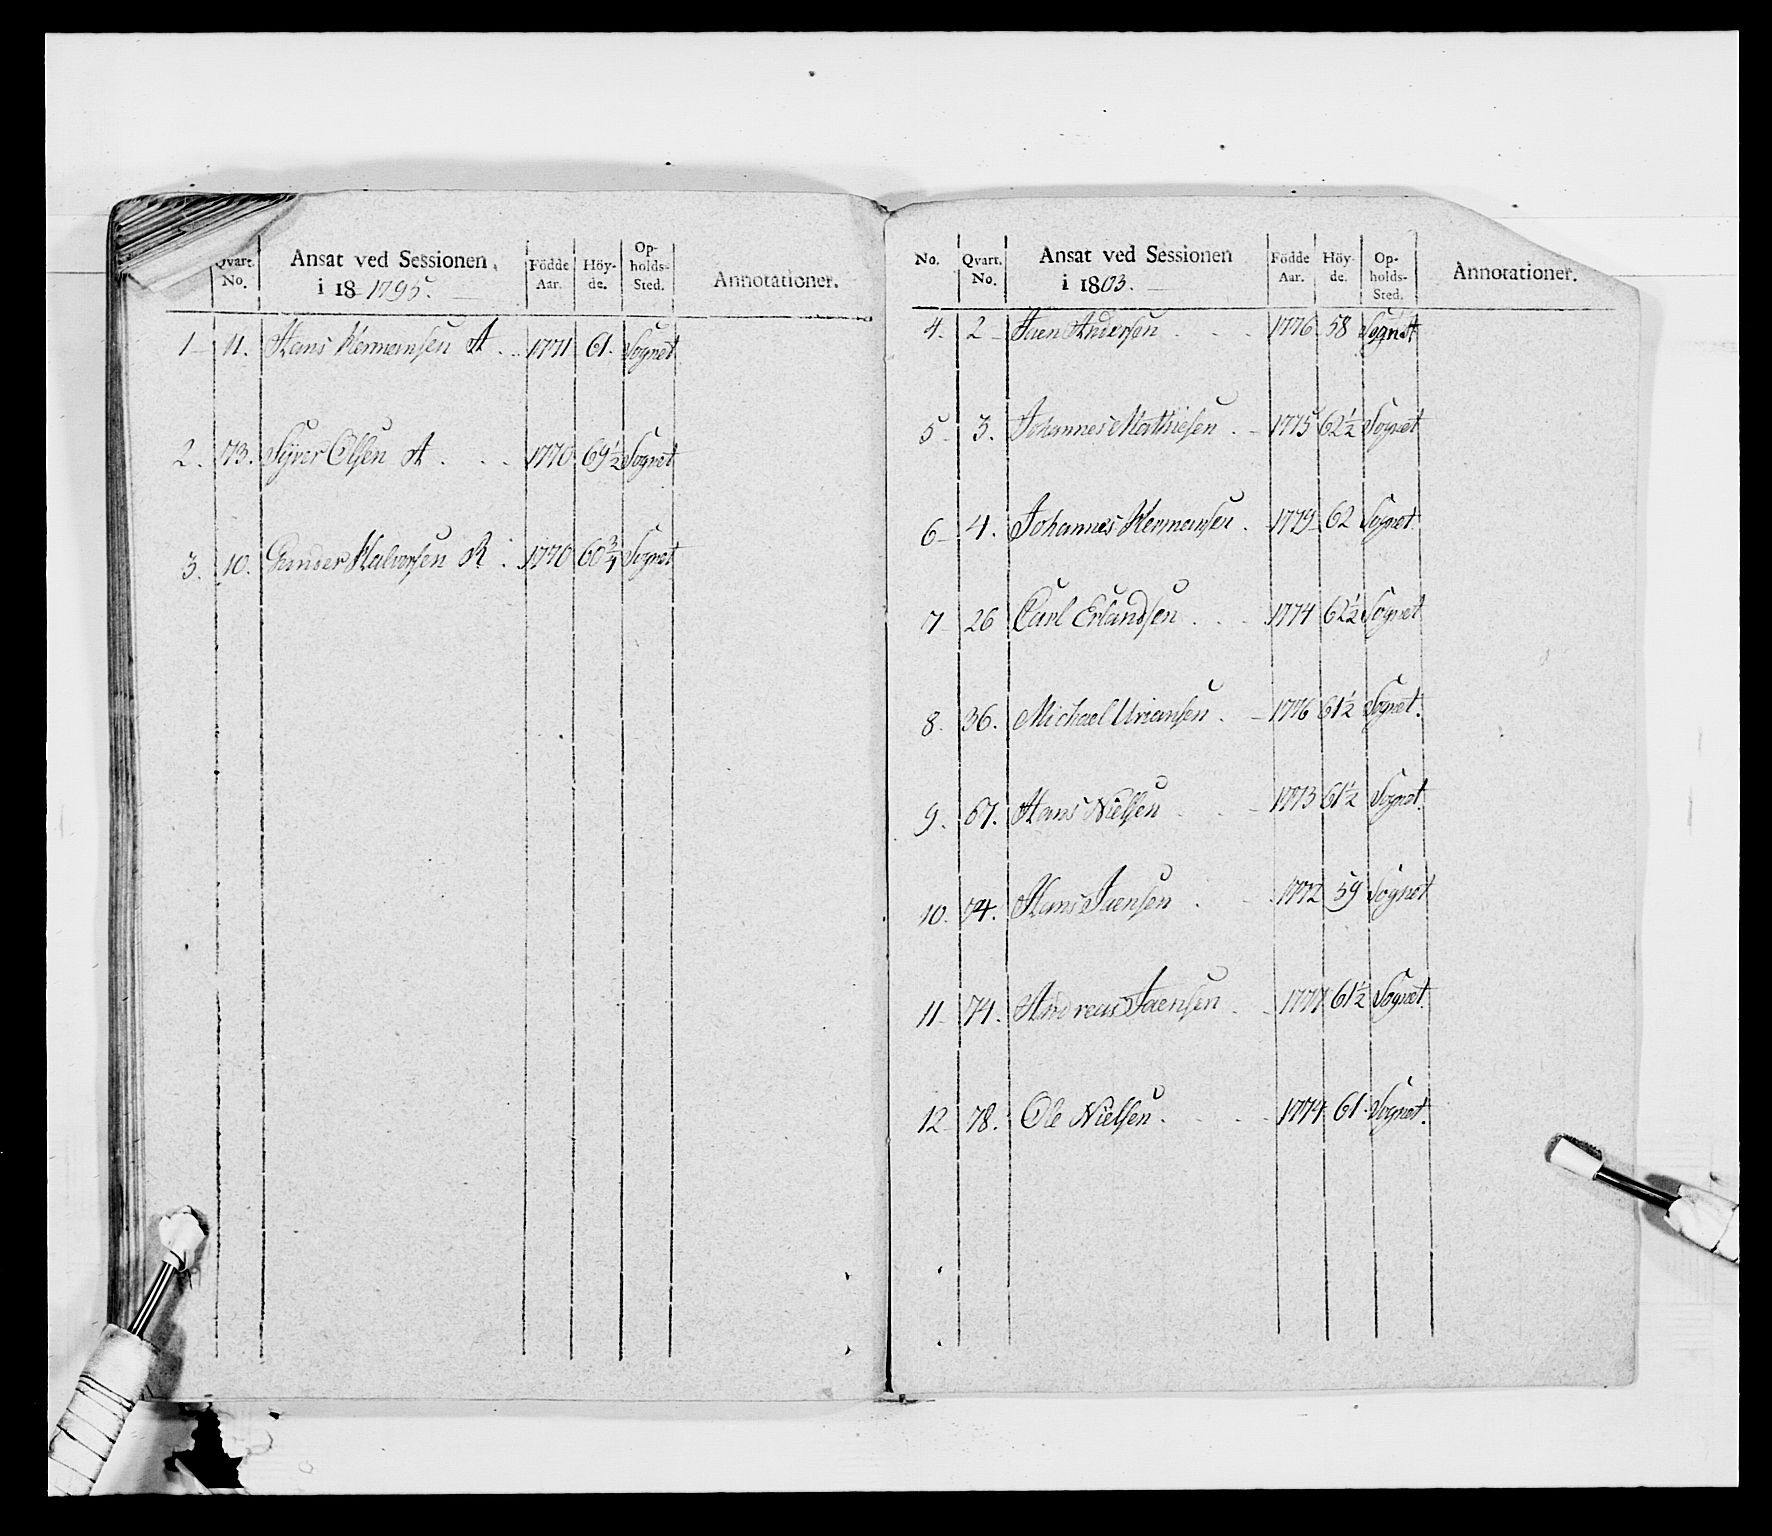 Qvart. No. Ansat ved Sessionen i 18 1795. Födde Aar. Höyde. Opholds-Sted. Annotationer.
1 11. Hans Hermansen A 1771 61. Sognet
2. 73. Syver Olsen A 1770 69½ Sognet
3. 10. Gunder Halvorsen R 1770 60¾ Sognet
No. Qvart. No. Ansat ved Sessionen i 1803. Födde Aar. Höyde. Opholds-Sted. Annotationer.
4. 2 Jaen Andersen 1776 58 Sognet
5 3. Johannes Mathiesen 1775 62½ Sognet
6 4. Johannes Hermansen 1779 62 Sognet
7 26 Carl Erlandsen 1774 62½ Sognet
8. 36. Michael Uriansen 1776 61½ Sognet.
9. 67. Hans Nielsen 1773 61½ Sognet.
10. 74. Hans Jaensen 1772 59 Sognet
11 74. Andreas Jaensen 1777 61½ Sognet.
12 78. Ole Nielsen 1774 61 Sognet.